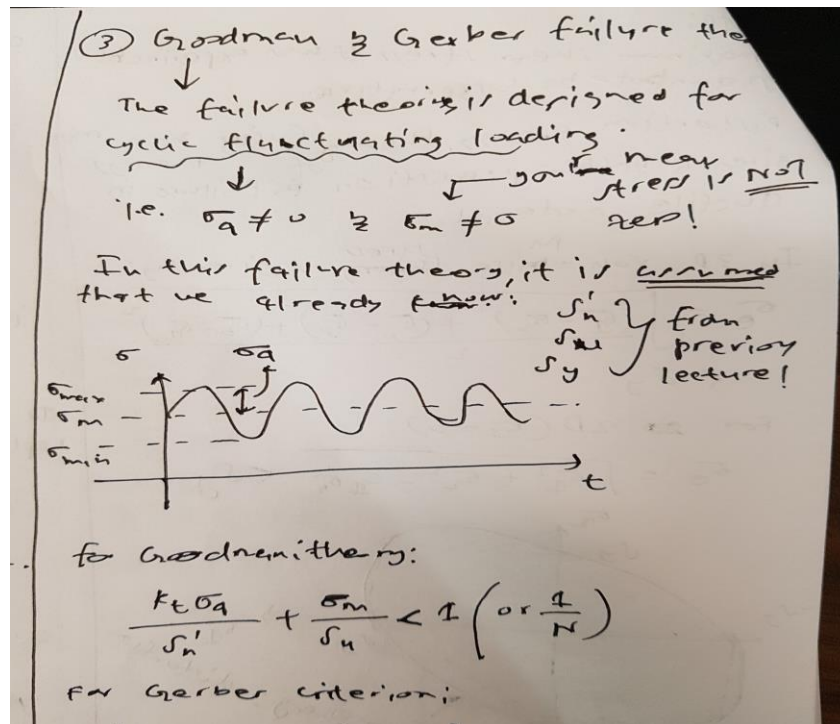 ③ Goodman & Gerber failure the
The failure theories is designed for
cyclic fluctuating loading.
i.e. σa ≠ 0 & σm ≠ 0
mean
stress is NOT
zero!
In this failure theory, it is assumed
that we already know:
Sn'
Su
Sy
from
previous
lecture!
σ
σa
σmax
σm
σmin
t
for Goodman theory:
Kt σa / Sn' + σm / Su < 1 (or 1/N)
For Gerber criterion: